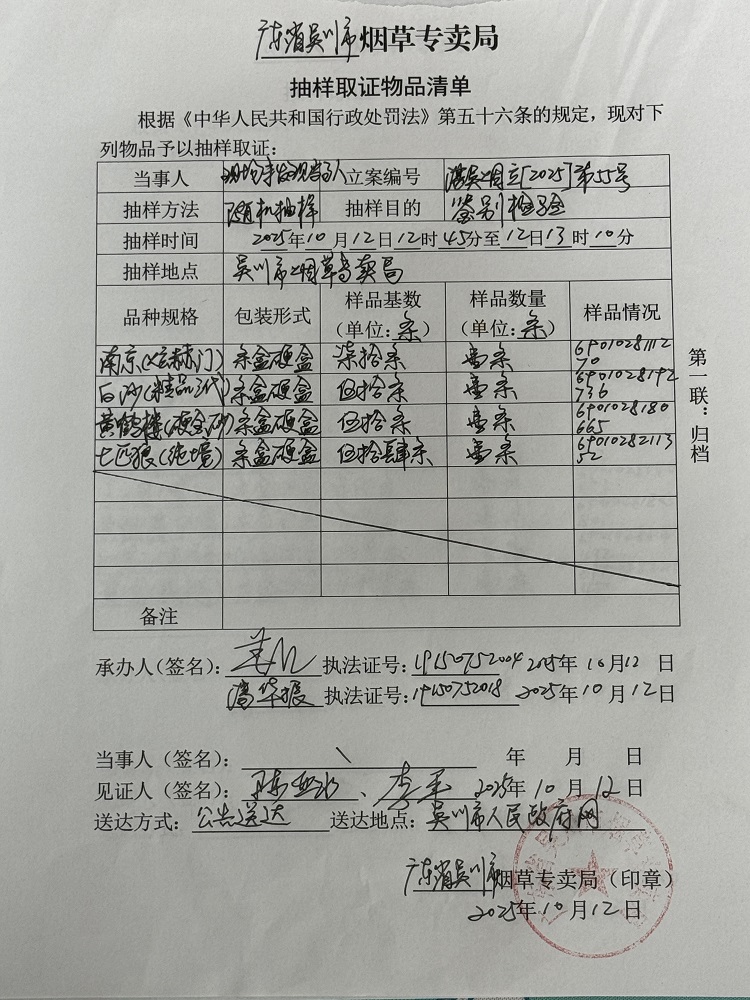 广东省吴川市烟草专卖局
抽样取证物品清单
根据《中华人民共和国行政处罚法》第五十六条的规定，现对下
列物品予以抽样取证：
当事人 现场未发现当事人 立案编号 湛吴烟立[2025]第55号
抽样方法 随机抽样 抽样目的 鉴别检验
抽样时间 2025年10月12日12时45分至12日13时10分
抽样地点 吴川市烟草专卖局
品种规格 包装形式 样品基数（单位：条） 样品数量（单位：条） 样品情况
南京(炫赫门) 条盒硬盒 柒拾条 壹条 690102811270
白沙(精品三代) 条盒硬盒 伍拾条 壹条 6901028192736
黄鹤楼(硬金砂) 条盒硬盒 伍拾条 壹条 6901028180665
七匹狼(纯境) 条盒硬盒 伍拾肆条 壹条 690102821352
备注
第一联：归档
承办人（签名）： 执法证号：19150752004 2025年10月12日
潘华振 执法证号：19150752018 2025年10月12日
当事人（签名）： 年 月 日
见证人（签名）： 2025年10月12日
送达方式：公告送达 送达地点：吴川市人民政府网
广东省吴川市烟草专卖局（印章）
2025年10月12日